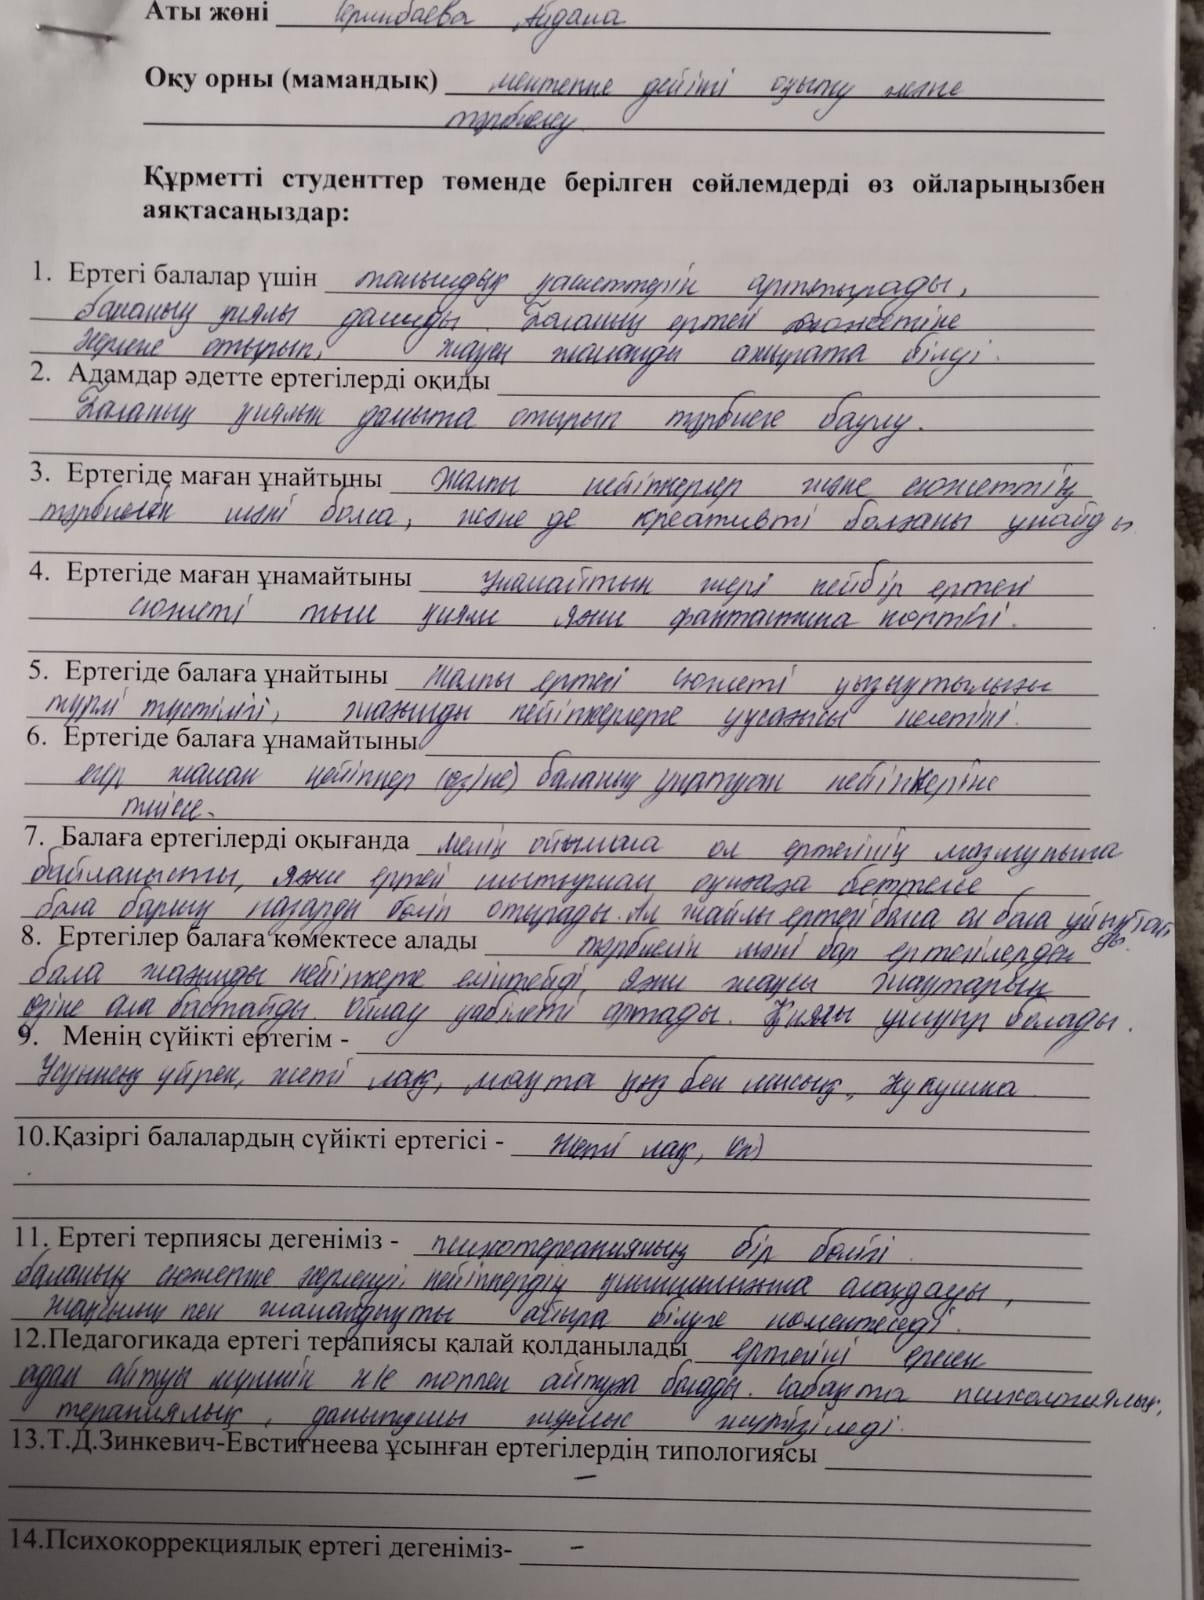 Аты жөні Айдана
Оқу орны (мамандық) мектепке дейінгі оқыту және
тәрбиелеу
Құрметті студенттер төменде берілген сөйлемдерді өз ойларыңызбен
аяқтасаңыздар:
1. Ертегі балалар үшін танымдық қасиеттерін арттырады,
баланың қиялы дамиды. Баланың ертегі сюжетіне
жақсы жаманды ажырата білуі.
2. Адамдар әдетте ертегілерді оқиды
Баланың қиялын дамыта отырып тәрбиеге баулу.
3. Ертегіде маған ұнайтыны Жалпы кейіпкерлер және сюжеттің
тәрбиелік мәні болса, және де креативті болғаны ұнайды
4. Ертегіде маған ұнамайтыны Ұнамайтын жері кейбір ертегі
сюжеті тым қиял яғни фантастика көптігі.
5. Ертегіде балаға ұнайтыны Жалпы ертегі сюжеті қызықтылығы
түрлі түстілігі, жағымды кейіпкерлерге ұқсағысы келетіні.
6. Ертегіде балаға ұнамайтыны
егер жаман кейіпкер (өзіне) баланың ұнатқан кейіпкеріне
тиісе.
7. Балаға ертегілерді оқығанда менің ойымша ол ертегінің мазмұнына
байланысты, яғни ертегі шытырман оқиғаға беттесе
бала барлық назарды бөліп отырады. Ал жайлы ертегі болса ол бала ұйықтап
8. Ертегілер балаға көмектесе алады тәрбиелік мәні бар ертегілерден
бала жағымды кейіпкерге еліктейді, яғни жақсы жақтарын
өзіне ала бастайды. Ойлау қабілеті артады. Қиялы ұшқыр болады.
9. Менің сүйікті ертегім -
Ұсқынсыз үйрек, жеті лақ, мақта қыз бен мысық, Кукушка
10.Қазіргі балалардың сүйікті ертегісі - Жеті лақ,
11. Ертегі терпиясы дегеніміз - психотерапияның бір бөлігі
баланың сюжетке кейіпкердің алаңдауы,
жақсылық пен жамандықты айыра білуге көмектеседі.
12.Педагогикада ертегі терапиясы қалай қолданылады ертегіні ересек
адам айтуы мүмкін н/е топпен айтуға болады. Сабақта психологиялық,
терапиялық, дамытушы жұмыс жүргізіледі.
13.Т.Д.Зинкевич-Евстигнеева ұсынған ертегілердің типологиясы
–
14.Психокоррекциялық ертегі дегеніміз- –